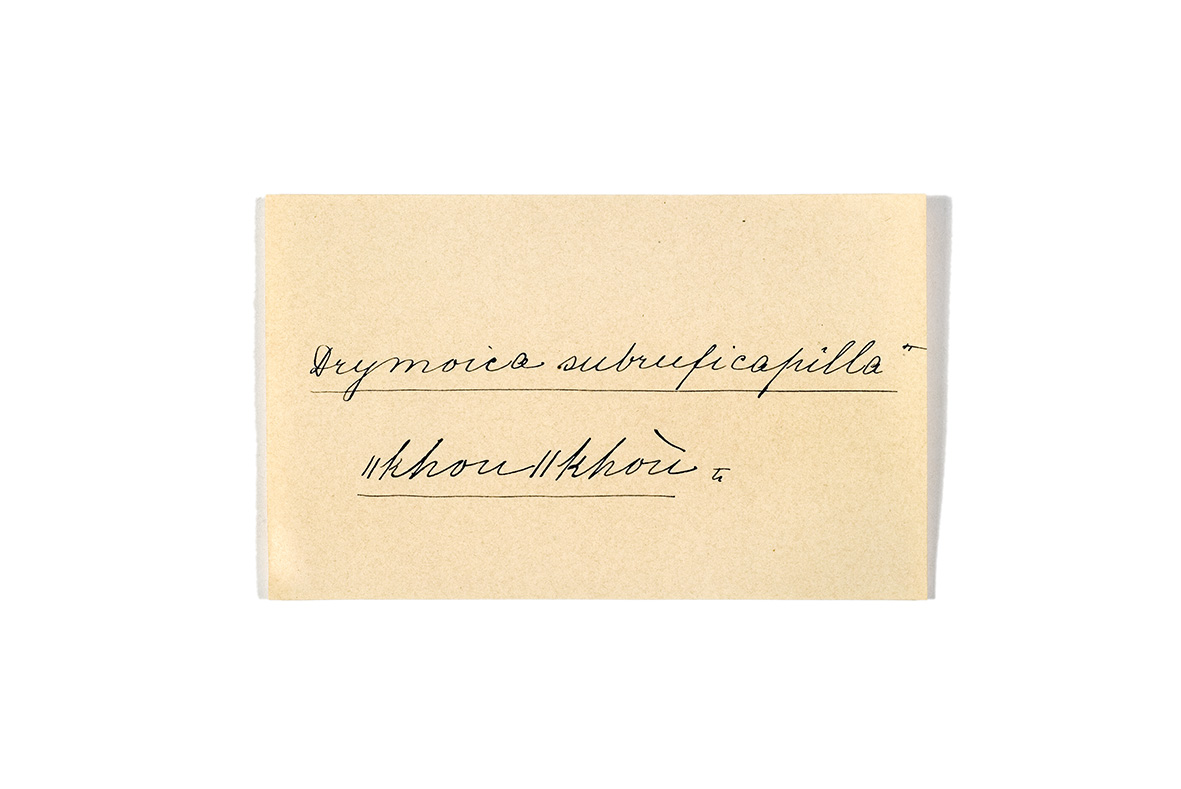 Drymoica subruficapilla
ǁkhou ǁkhoù